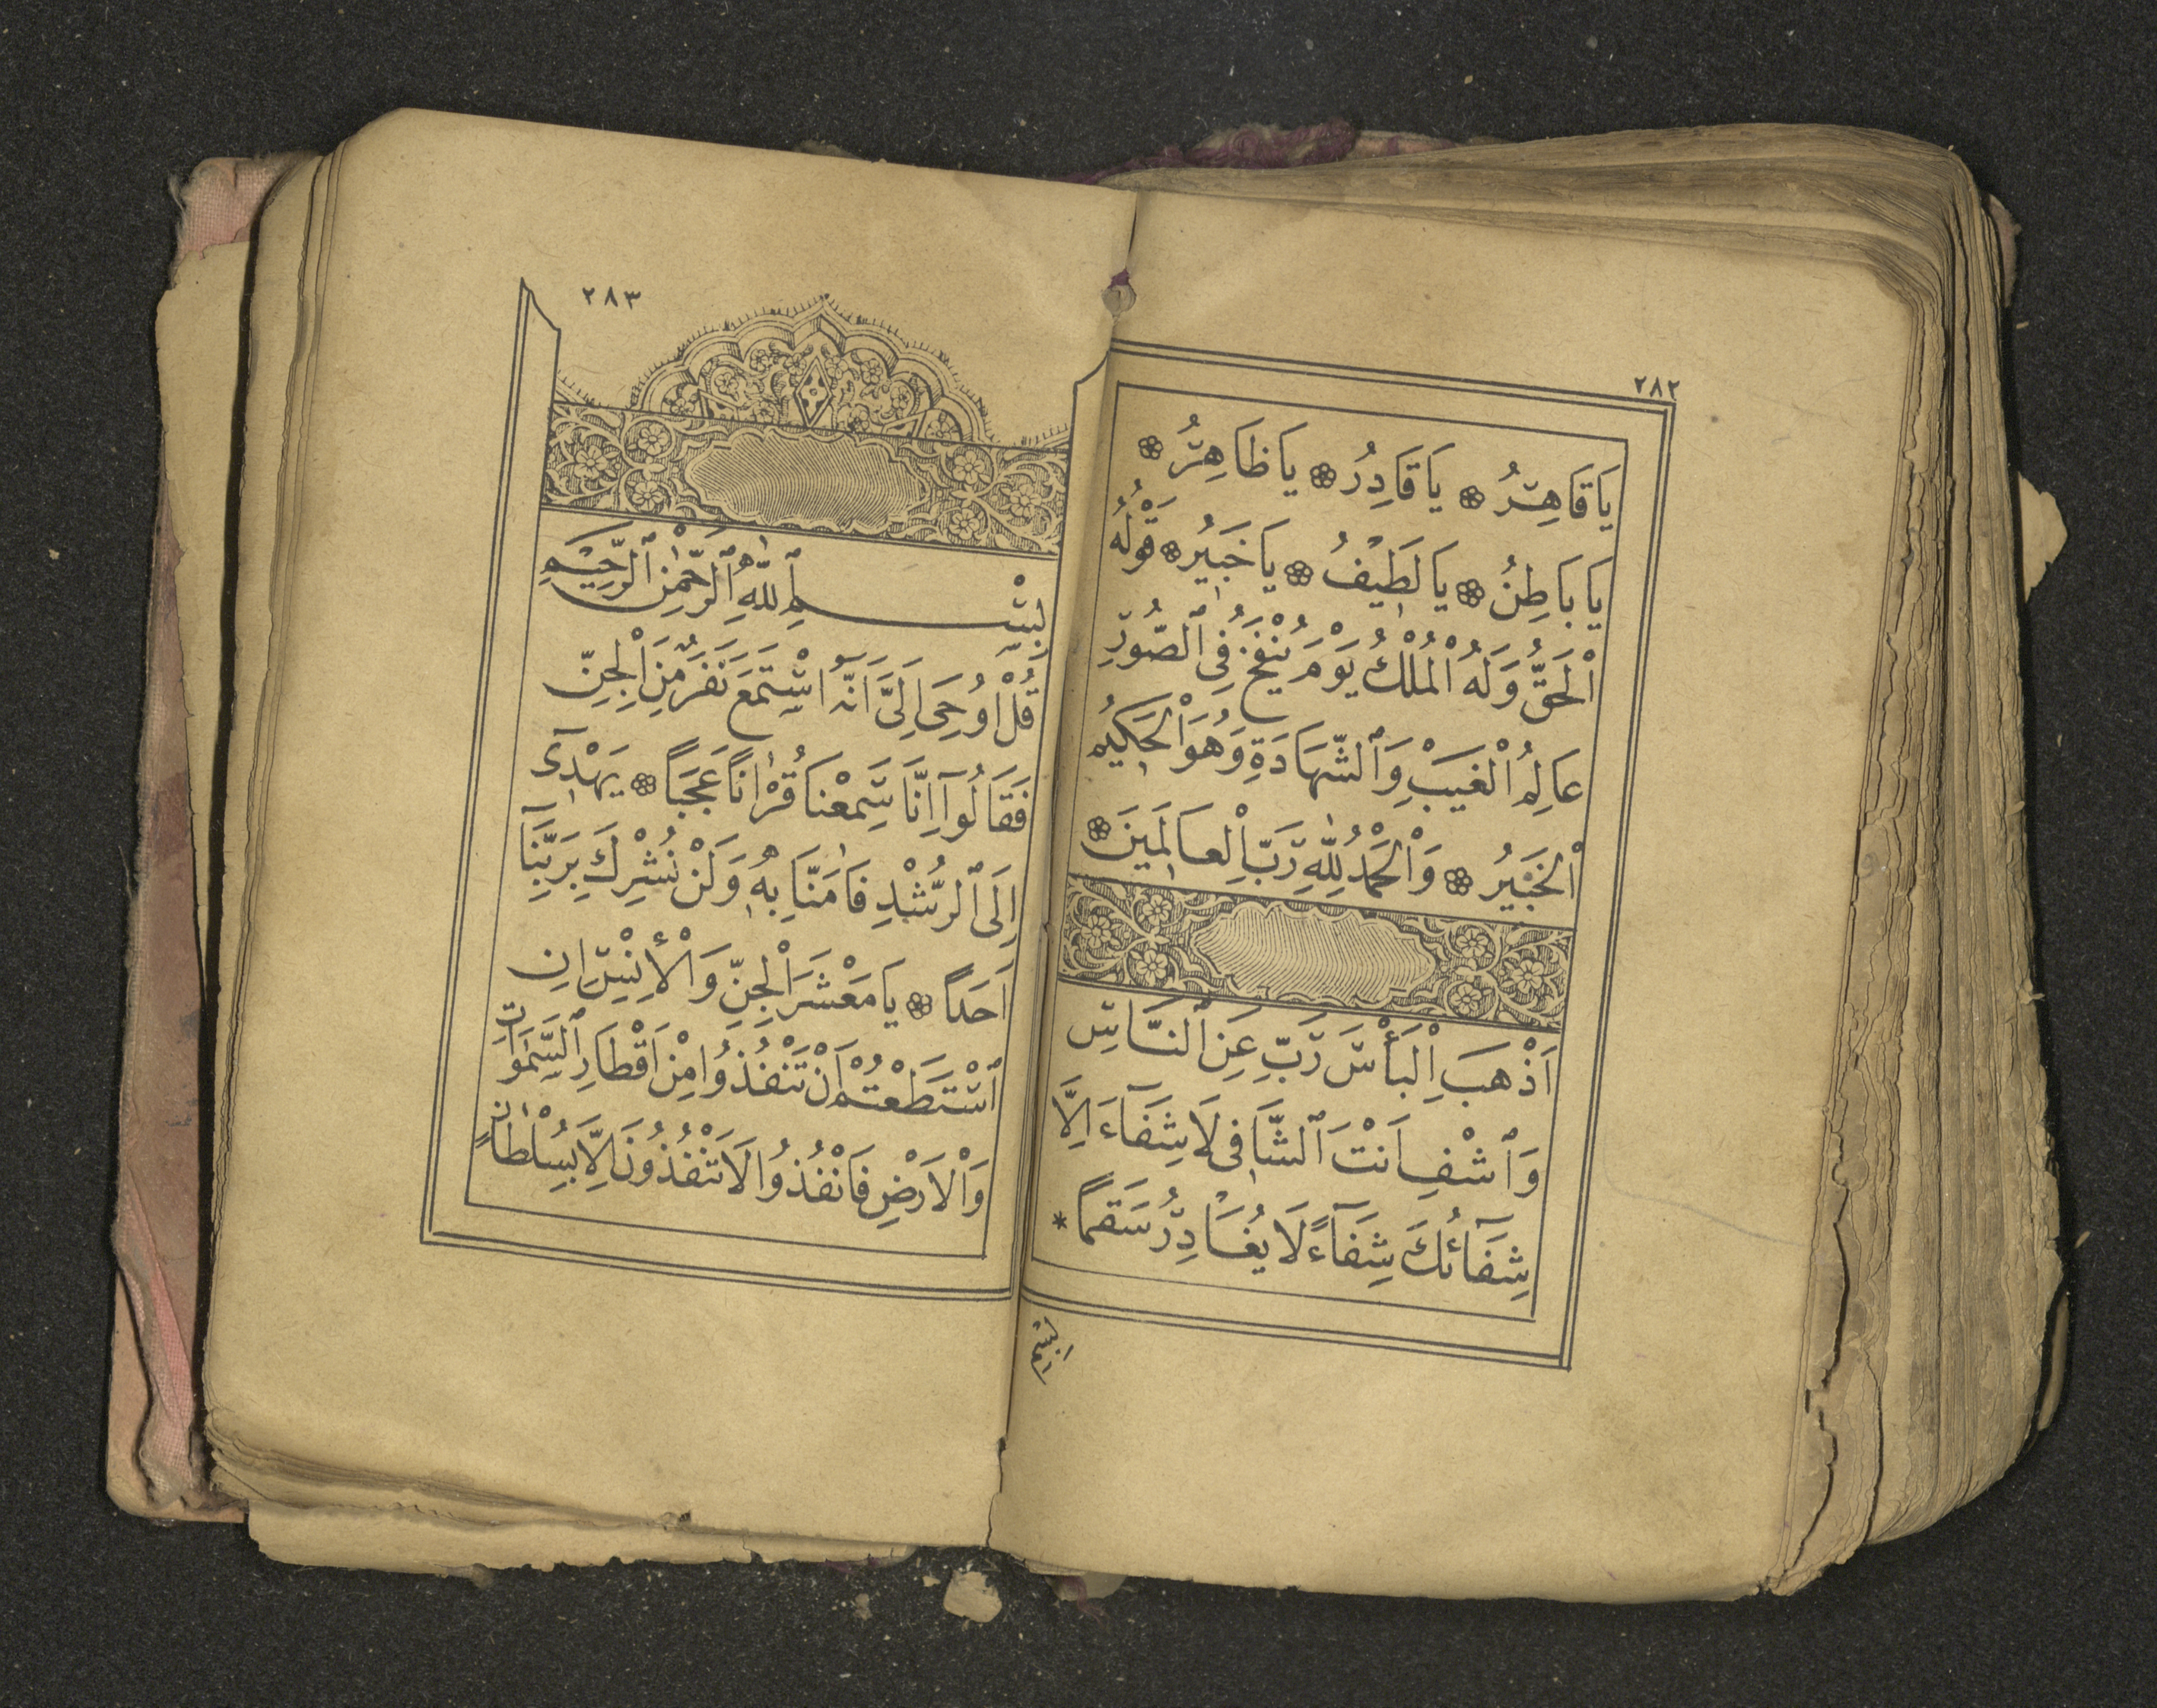 ٢٨٢
يَا قَاهِرُ ❀ يَا قَادِرُ ❀ يَا ظَاهِرُ ❀
يَا بَاطِنُ ❀ يَا لَطِيْفُ ❀ يَا خَبِيْرُ ❀ قَوْلُهُ
اْلحَقُّ وَلَهُ اْلمُلْكُ يَوْمَ يُنْفَخُ فِى ٱلصُّورِ
عَالِمُ اْلغَيْبِ وَٱلشَّهَادَةِ وَهُوَ اْلحَكِيمُ
اْلخَبِيْرُ ❀ وَاْلحَمْدُ لِلّٰهِ رَبِّ اْلعَالَمِينَ ❀
اَذْهِبَ اِلْبَأْسَ رَبِّ عَنِ ٱلنَّاسِ
وَٱشْفِ اَنْتَ ٱلشَّافِى لَا شِفَآءَ اِلَّا
شِفَآئُكَ شِفَآءً لَا يُغَادِرُ سَقَمًا *
٢٨٣
بِسْمِ ٱللّٰهِ ٱلرَّحْمٰنِ ٱلرَّحِيْمِ
قُلْ اُوحِىَ اِلَىَّ اَنَّهُ اسْتَمَعَ نَفَرٌ مِنَ اْلجِنِّ
فَقَالُوآ اِنَّا سَمِعْنَا قُرْاٰنًا عَجَبًا ❀ يَهْدِىٓ
اِلَى ٱلرُّشْدِ فَاٰمَنَّا بِهٖ وَلَنْ نُشْرِكَ بِرَبِّنَآ
اَحَدًا ❀ يَا مَعْشَرَ اْلجِنِّ وَاْلأِنْسِ اِنِ
ٱسْتَطَعْتُمْ اَنْ تَنْفُذُوا مِنْ اَقْطَارِ ٱلسَّمٰوَاتِ
وَاْلاَرْضِ فَانْفُذُوا لَا تَنْفُذُونَ اِلَّا بِسُلْطَانٍ